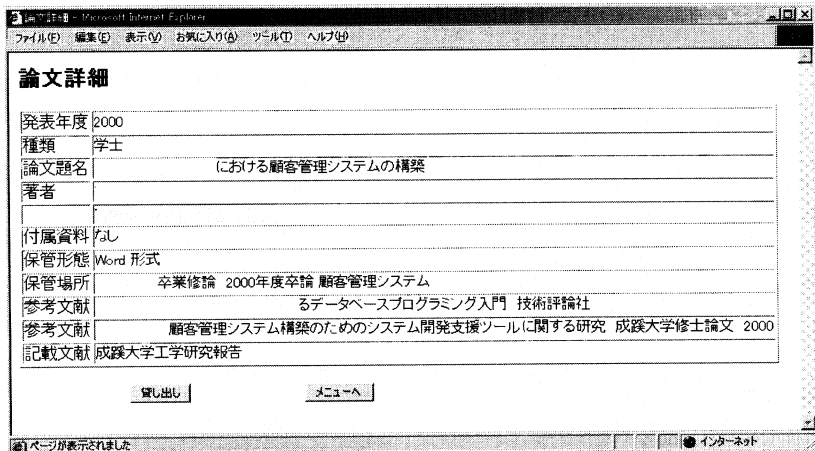 論文詳細 - Microsoft Internet Explorer
ファイル(F) 編集(E) 表示(V) お気に入り(A) ツール(T) ヘルプ(H)
論文詳細
発表年度 2000
種類 学士
論文題名 における顧客管理システムの構築
著者
付属資料 なし
保管形態 Word 形式
保管場所 卒業修論 2000年度卒論 顧客管理システム
参考文献 るデータベースプログラミング入門 技術評論社
参考文献 顧客管理システム構築のためのシステム開発支援ツールに関する研究 成蹊大学修士論文 2000
記載文献 成蹊大学工学研究報告
貸し出し メニューへ
ページが表示されました インターネット